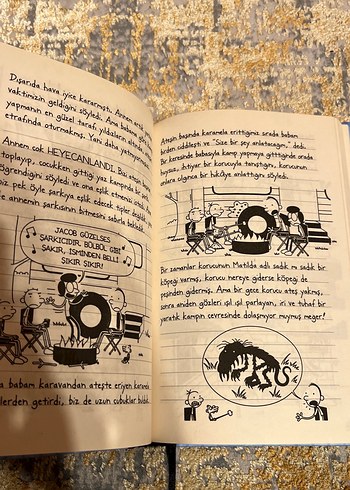 Dışarıda hava iyice kararmıştı. Annem artık
vaktimizin geldiğini söyledi. Ama babama göre kamp
yapmanın en güzel tarafı, yıldızların altında
etrafında oturmakmış. Yani daha yatmıyormuşuz.
Annem çok HEYECANLANDI. Bizi ateşin
toplayıp, çocukken gittiği yaz kampında bir şarkı
öğrendiğini söyledi ve ona eşlik etmemizi
biz pek öyle şarkıya eşlik edecek tipler değildik
de annemin şarkısının bitmesini sabırla bekledik.
JACOB GÜZELSES
ŞARKICIDIR, BÜLBÜL GİBİ
ŞAKIR, İSMİNDEN BELLİ
ŞIKIR ŞIKIR!
babam karavandan ateşte eriyen karamela
lerden getirdi, biz de uzun çubuklar bulduk.
Ateşin başında karamela erittiğimiz sırada babam
birden ciddileşti ve "Size bir şey anlatacağım," dedi.
Bir keresinde babasıyla kamp yapmaya gittiğinde orada
huysuz, ihtiyar bir korucuyla tanıştığını, korucunun
onlara çılgınca bir hikâye anlattığını söyledi.
Bir zamanlar korucunun Matilda adlı sadık mı sadık bir
köpeği varmış, korucu nereye giderse köpeği de
peşinden gidermiş. Ama bir gece korucu ateş yakmış,
sonra aniden gözleri ışıl ışıl parlayan, iri ve tuhaf bir
yaratık kampın çevresinde dolaşmıyor muymuş meğer!